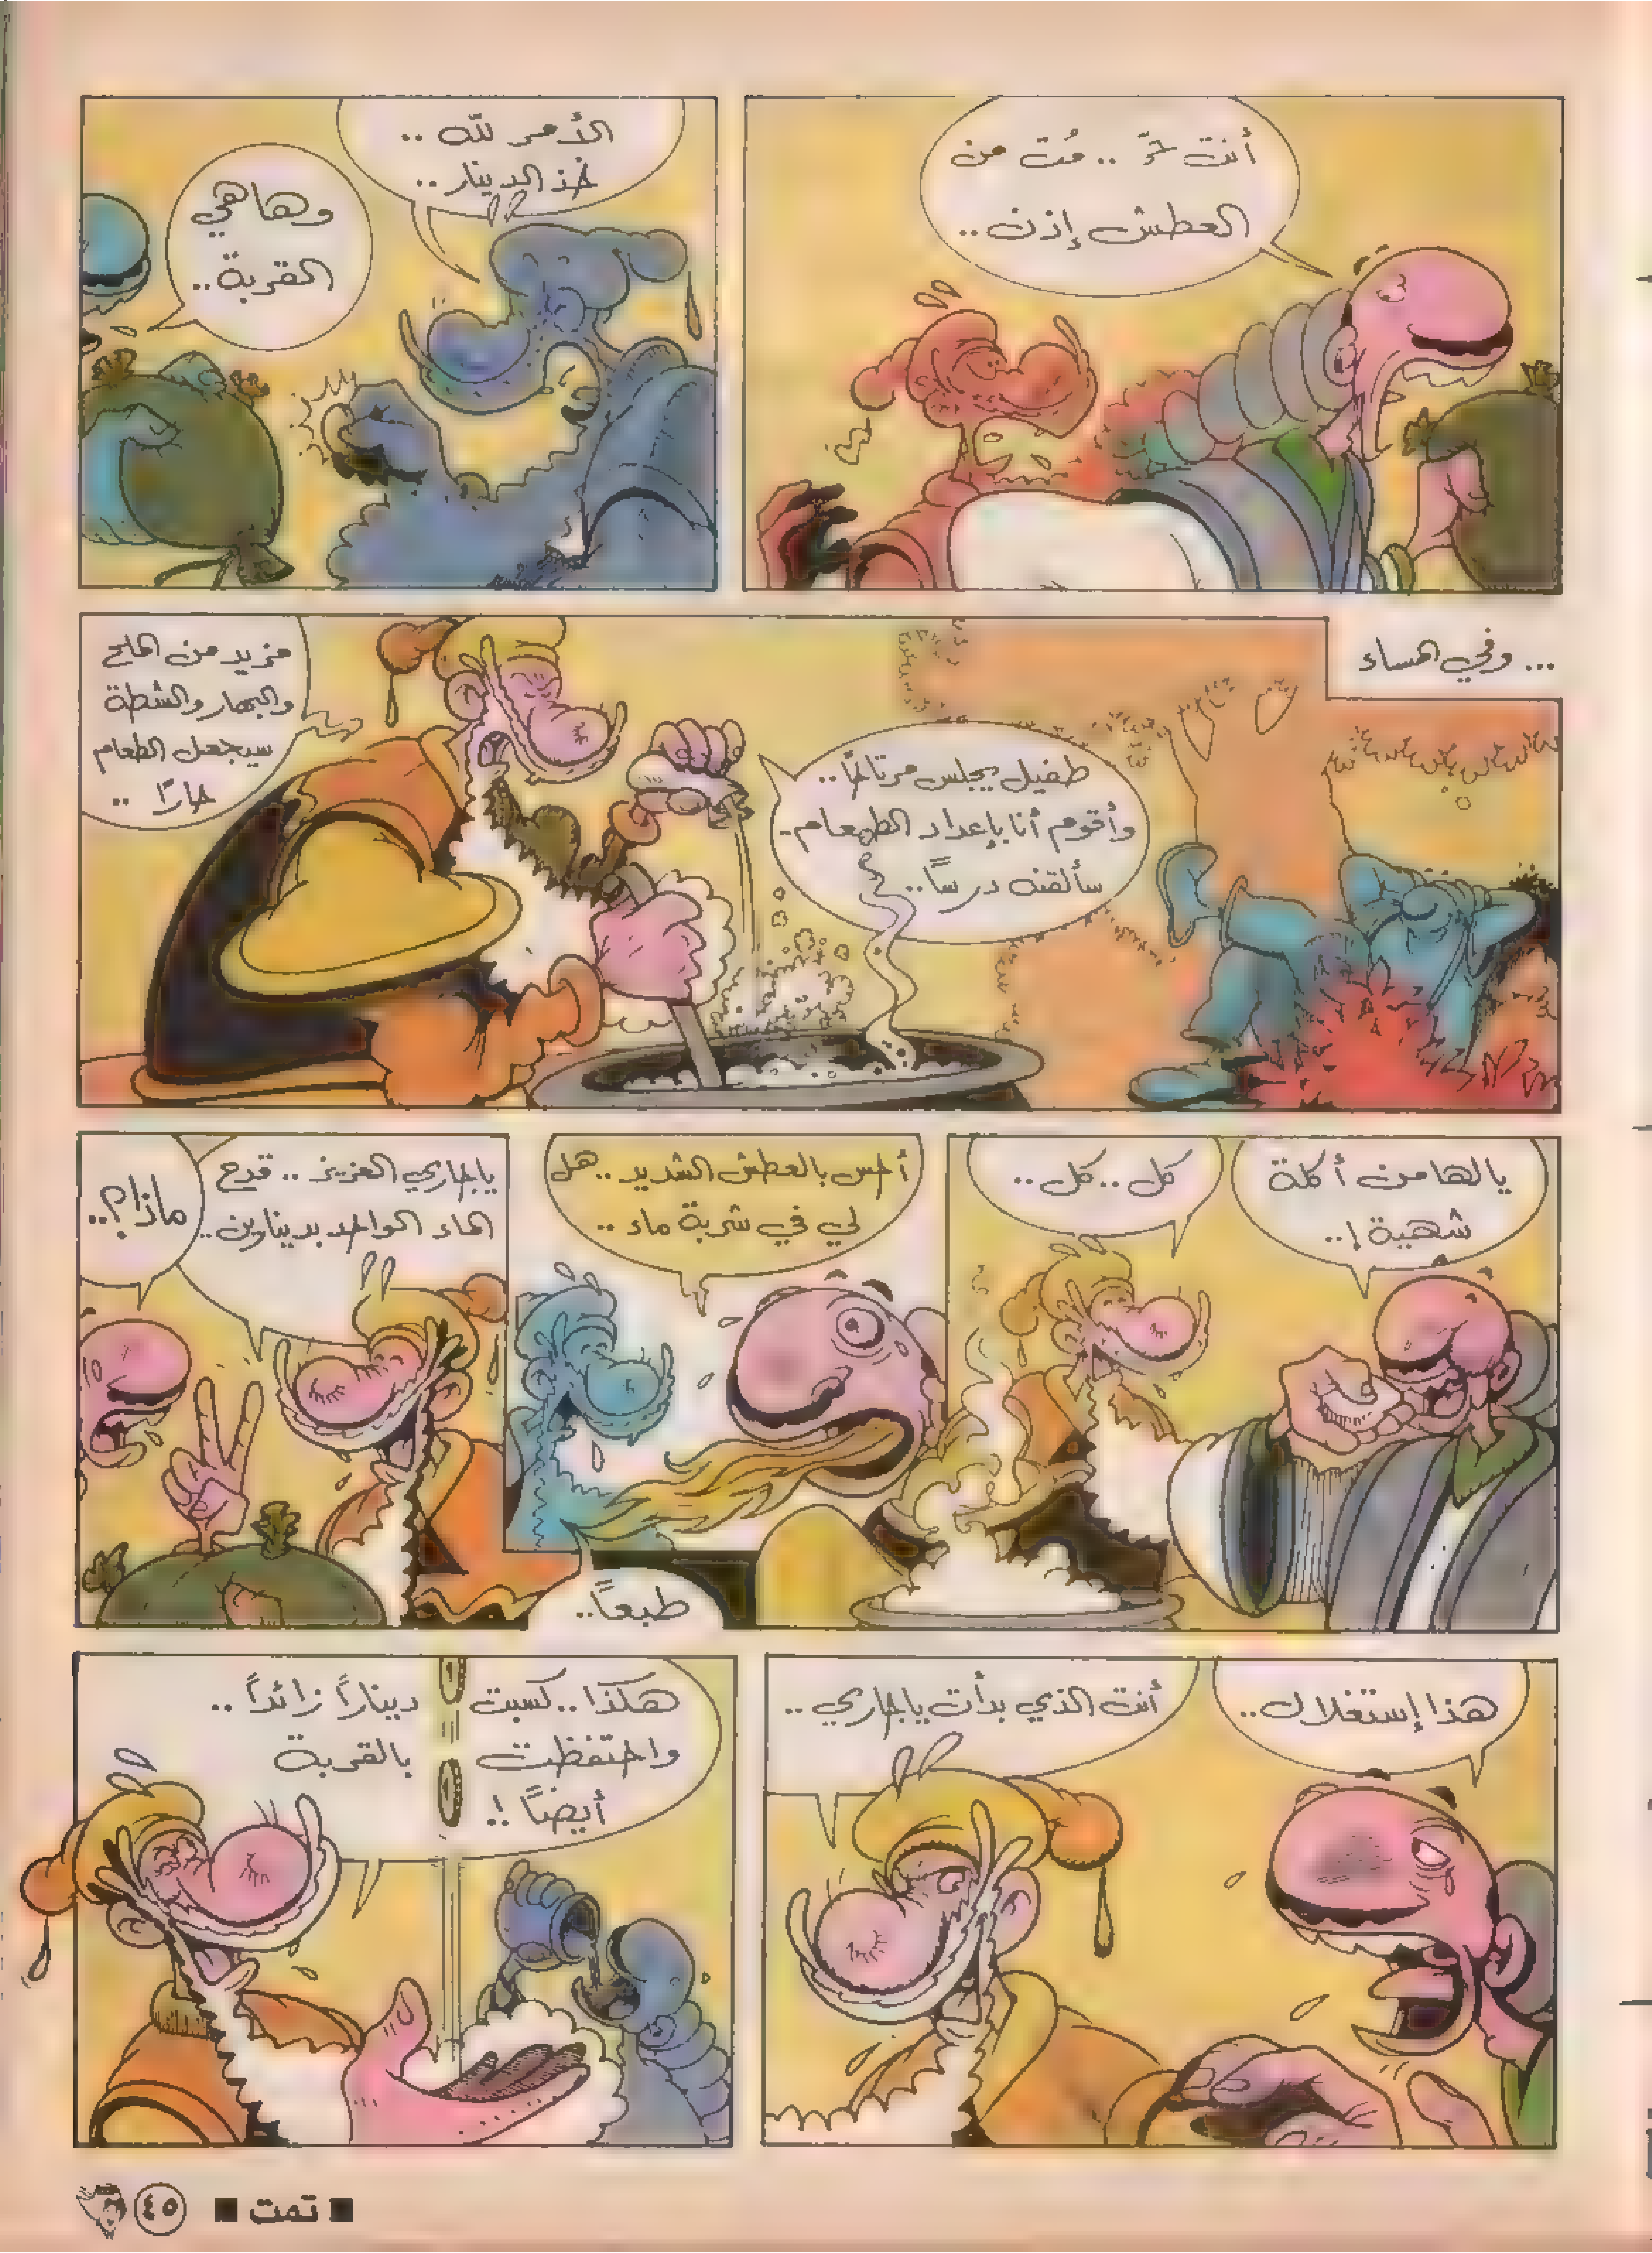 أنت حرّ .. مُت من
العطش إذن..
الأمر لله ..
خذ الدينار ..
وهاهي
القربة..
... وفي المساء
طفيل يجلس مرتاحًا..
وأقوم أنا بإعداد الطعام-
سألقنه درسًا..
مزيد من الملح
والبهار والشطة
سيجعل الطعام
حارًا ..
يالها من أكلة
شهية !..
كل .. كل ..
أحس بالعطش الشديد .. هل
لي في شربة ماء ..
طبعًا..
ياجاري العزيز .. قدح
الماء الواحد بدينارين..
ماذا؟..
هذا إستغلال..
أنت الذي بدأت ياجاري ..
هكذا .. كسبت دينارًا زائدًا ..
واحتفظت بالقربة
أيضًا !..
■ تمت ■ ٤٥